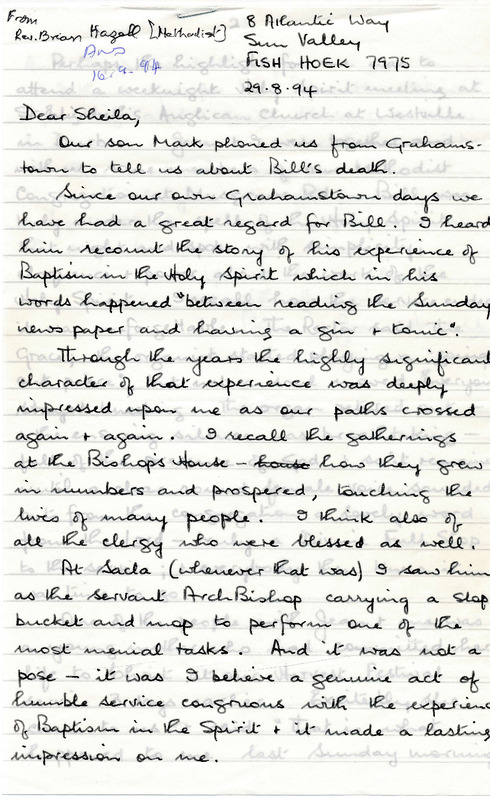 From
Rev. Brian Hazell [Methodist]
Ans
16.9.94
8 Atlantic Way
Sun Valley
FISH HOEK 7975
29.8.94
Dear Sheila,
Our son Mark phoned us from Grahams-
town to tell us about Bill's death.
Since our own Grahamstown days we
have had a great regard for Bill. I heard
him recount the story of his experience of
Baptism in the Holy Spirit which in his
words happened "between reading the Sunday
news paper and having a gin + tonic".
Through the years the highly significant
character of that experience was deeply
impressed upon me as our paths crossed
again + again. I recall the gatherings
at the Bishop's House - house how they grew
in numbers and prospered, touching the
lives of many people. I think also of
all the clergy who were blessed as well.
At Sacla (whenever that was) I saw him
as the servant ArchBishop carrying a slop
bucket and mop to perform one of the
most menial tasks. And it was not a
pose - it was I believe a genuine act of
humble service congruous with the experienc
of Baptism in the Spirit + it made a lasting
impression on me.